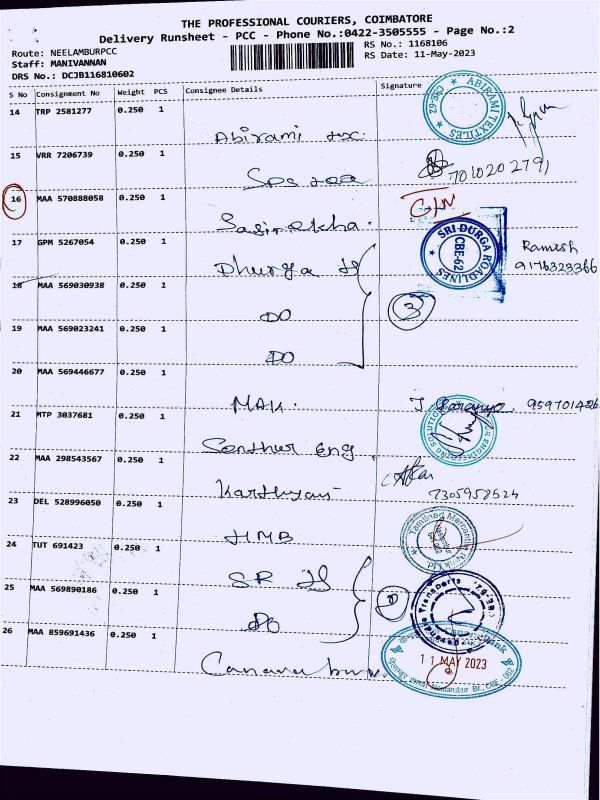 THE PROFESSIONAL COURIERS, COIMBATORE
Delivery Runsheet - PCC - Phone No.:0422-3505555 - Page No.:2
Route: NEELAMBURPCC
RS No.: 1168106
Staff: MANIVANNAN
RS Date: 11-May-2023
DRS No.: DCJB116810602
S No Consignment No Weight PCS Consignee Details Signature
14 TRP 2581277 0.250 1
ABIRAMI TEXTILES
CBE-62
Abirami tex.
15 VRR 7206739 0.250 1
7010202791
16 MAA 570888058 0.250 1
Sasirekha.
17 GPM 5267054 0.250 1
SRI DURGA ROADLINES
CBE-62
Ramesh
9176323366
Dhurga
18 MAA 569030938 0.250 1
3
DO
19 MAA 569023241 0.250 1
DO
20 MAA 569446677 0.250 1
MAK.
959701426
21 MTP 3037681 0.250 1
ENGINEERING SOLUTION
Senthur Eng
22 MAA 298543567 0.250 1
7305958524
23 DEL 528996050 0.250 1
Tamilnad Mercantile Bank Ltd
HMB
24 TUT 691423 0.250 1
SR
25 MAA 569890186 0.250 1
DO
26 MAA 859691436 0.250 1
11 MAY 2023
Neelambur Br., CBE - 062